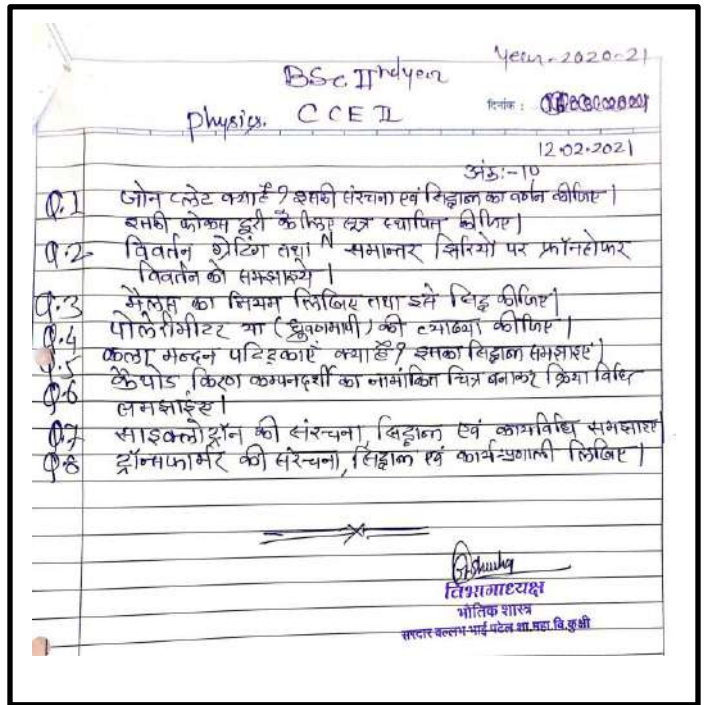 Year-2020-21
BSc. IIndyear
Physics. CCE II
दिनांक :
12.02.2021
अंक:-10
Q.1 जोन प्लेट क्या है ? इसकी संरचना एवं सिद्धान्त का वर्णन कीजिए |
इसकी फोकस दूरी के लिए सूत्र स्थापित कीजिए |
Q.2 विवर्तन ग्रेटिंग तथा N समान्तर झिरियो पर फ्रॉनहोफर
विवर्तन को समझाइये |
Q.3 मैलस का नियम लिखिए तथा इसे सिद्ध कीजिए |
Q.4 पोलेरीमीटर या (ध्रुवणमापी) की व्याख्या कीजिए |
Q.5 कला मन्दन पट्टिकाएँ क्या है ? इसका सिद्धान्त समझाइएं |
Q.6 कैथोड किरण कम्पनदर्शी का नामांकित चित्र बनाकर क्रिया विधि
समझाईए |
Q.7 साइक्लोट्रॉन की संरचना, सिद्धान्त एवं कार्यविधि समझाइए
Q.8 ट्रॉन्सफार्मर की संरचना, सिद्धान्त एवं कार्य-प्रणाली लिखिए |
विभागाध्यक्ष
भौतिक शास्त्र
सरदार वल्लभ भाई पटेल शा. महा. वि. कुक्षी